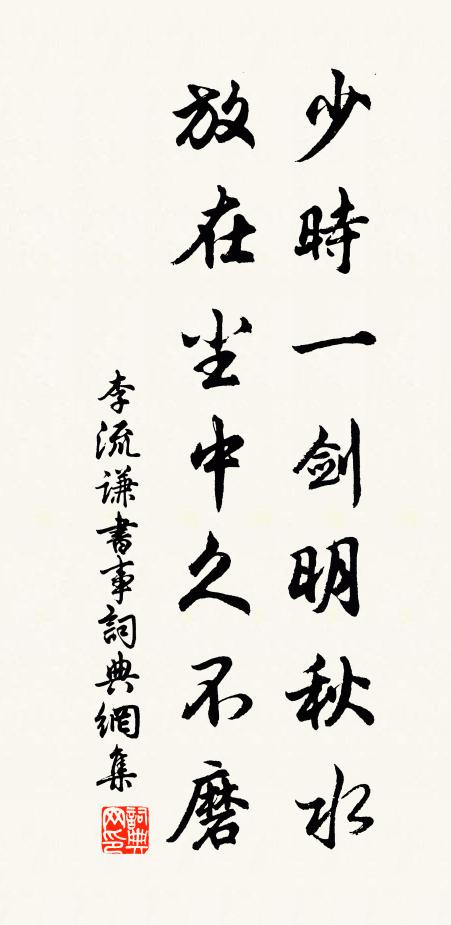 少時一劍明秋水
放在尘中久不磨
李流謙書事詞典網集
詞典
网印